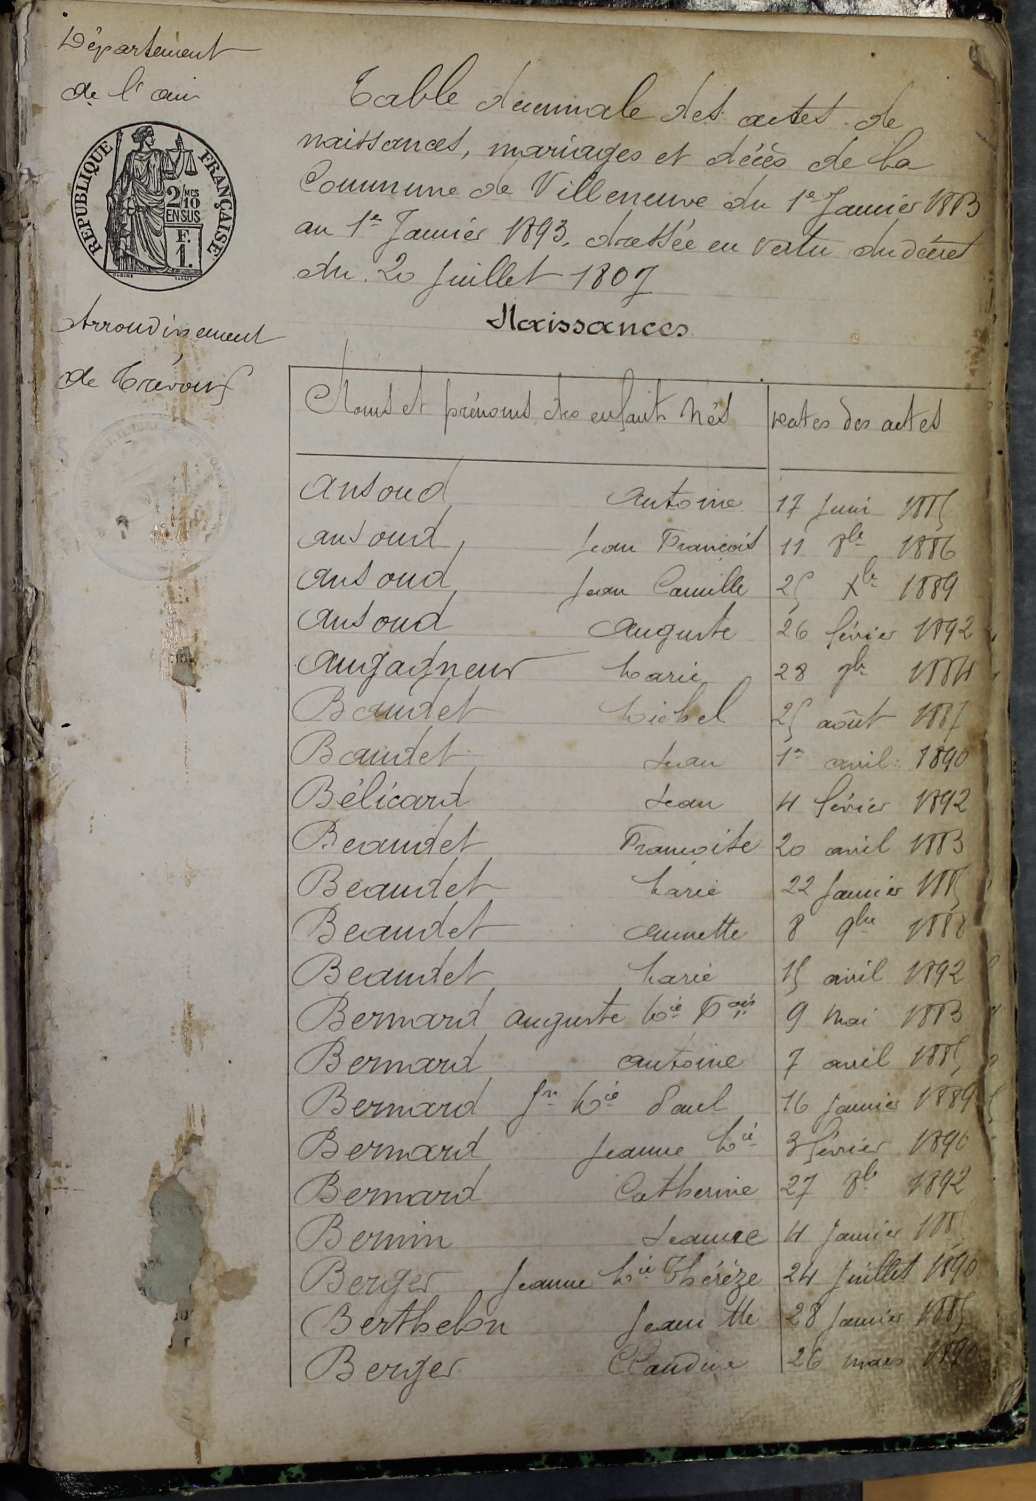 Département
de l'ain
RÉPUBLIQUE FRANÇAISE
2/10
EN SUS
F.
1.
Arrondissement
de Trévoux
Table décennale des actes de
naissances, mariages et décès de la
Commune de Villeneuve du 1er Janvier 1883
au 1er Janvier 1893, dressée en vertu du décret
du 20 Juillet 1807
Naissances
Noms et prénoms des enfants nés Dates des actes
Ansoud Antoine 17 Juin 1885
Ansoud Jean François 11 8bre 1886
Ansoud Jean Camille 25 Xbre 1889
Ansoud Auguste 26 février 1892
Augagneur Marie 28 9bre 1884
Baudet Michel 25 août 1887
Baudet Jean 1er avril 1890
Bélicard Jean 4 février 1892
Beaudet Françoise 20 avril 1883
Beaudet Marie 22 Janvier 1885
Beaudet Annette 8 9bre 1888
Beaudet Marie 15 avril 1892
Bernard Auguste Mie Fçois 9 Mai 1883
Bernard Antoine 7 avril 1885
Bernard Jn Mie Paul 16 Janvier 1889
Bernard Jeanne Mie 3 février 1890
Bernard Catherine 27 8bre 1892
Bernin Jeanne 4 Janvier 1885
Berger Jeanne Mie Thérèze 24 Juillet 1890
Berthelon Jean Mie 28 Janvier 1885
Berger Claudine 26 mars 1890